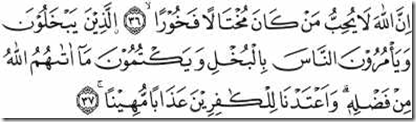 اِنَّ اللّٰهَ لَا يُحِبُّ مَنْ كَانَ مُخْتَالًا فَخُوْرًاۙ ﴿٣٦﴾ الَّذِيْنَ يَبْخَلُوْنَ
وَيَأْمُرُوْنَ النَّاسَ بِالْبُخْلِ وَيَكْتُمُوْنَ مَآ اٰتٰىهُمُ اللّٰهُ
مِنْ فَضْلِهٖۗ وَاَعْتَدْنَا لِلْكٰفِرِيْنَ عَذَابًا مُّهِيْنًاۚ ﴿٣٧﴾